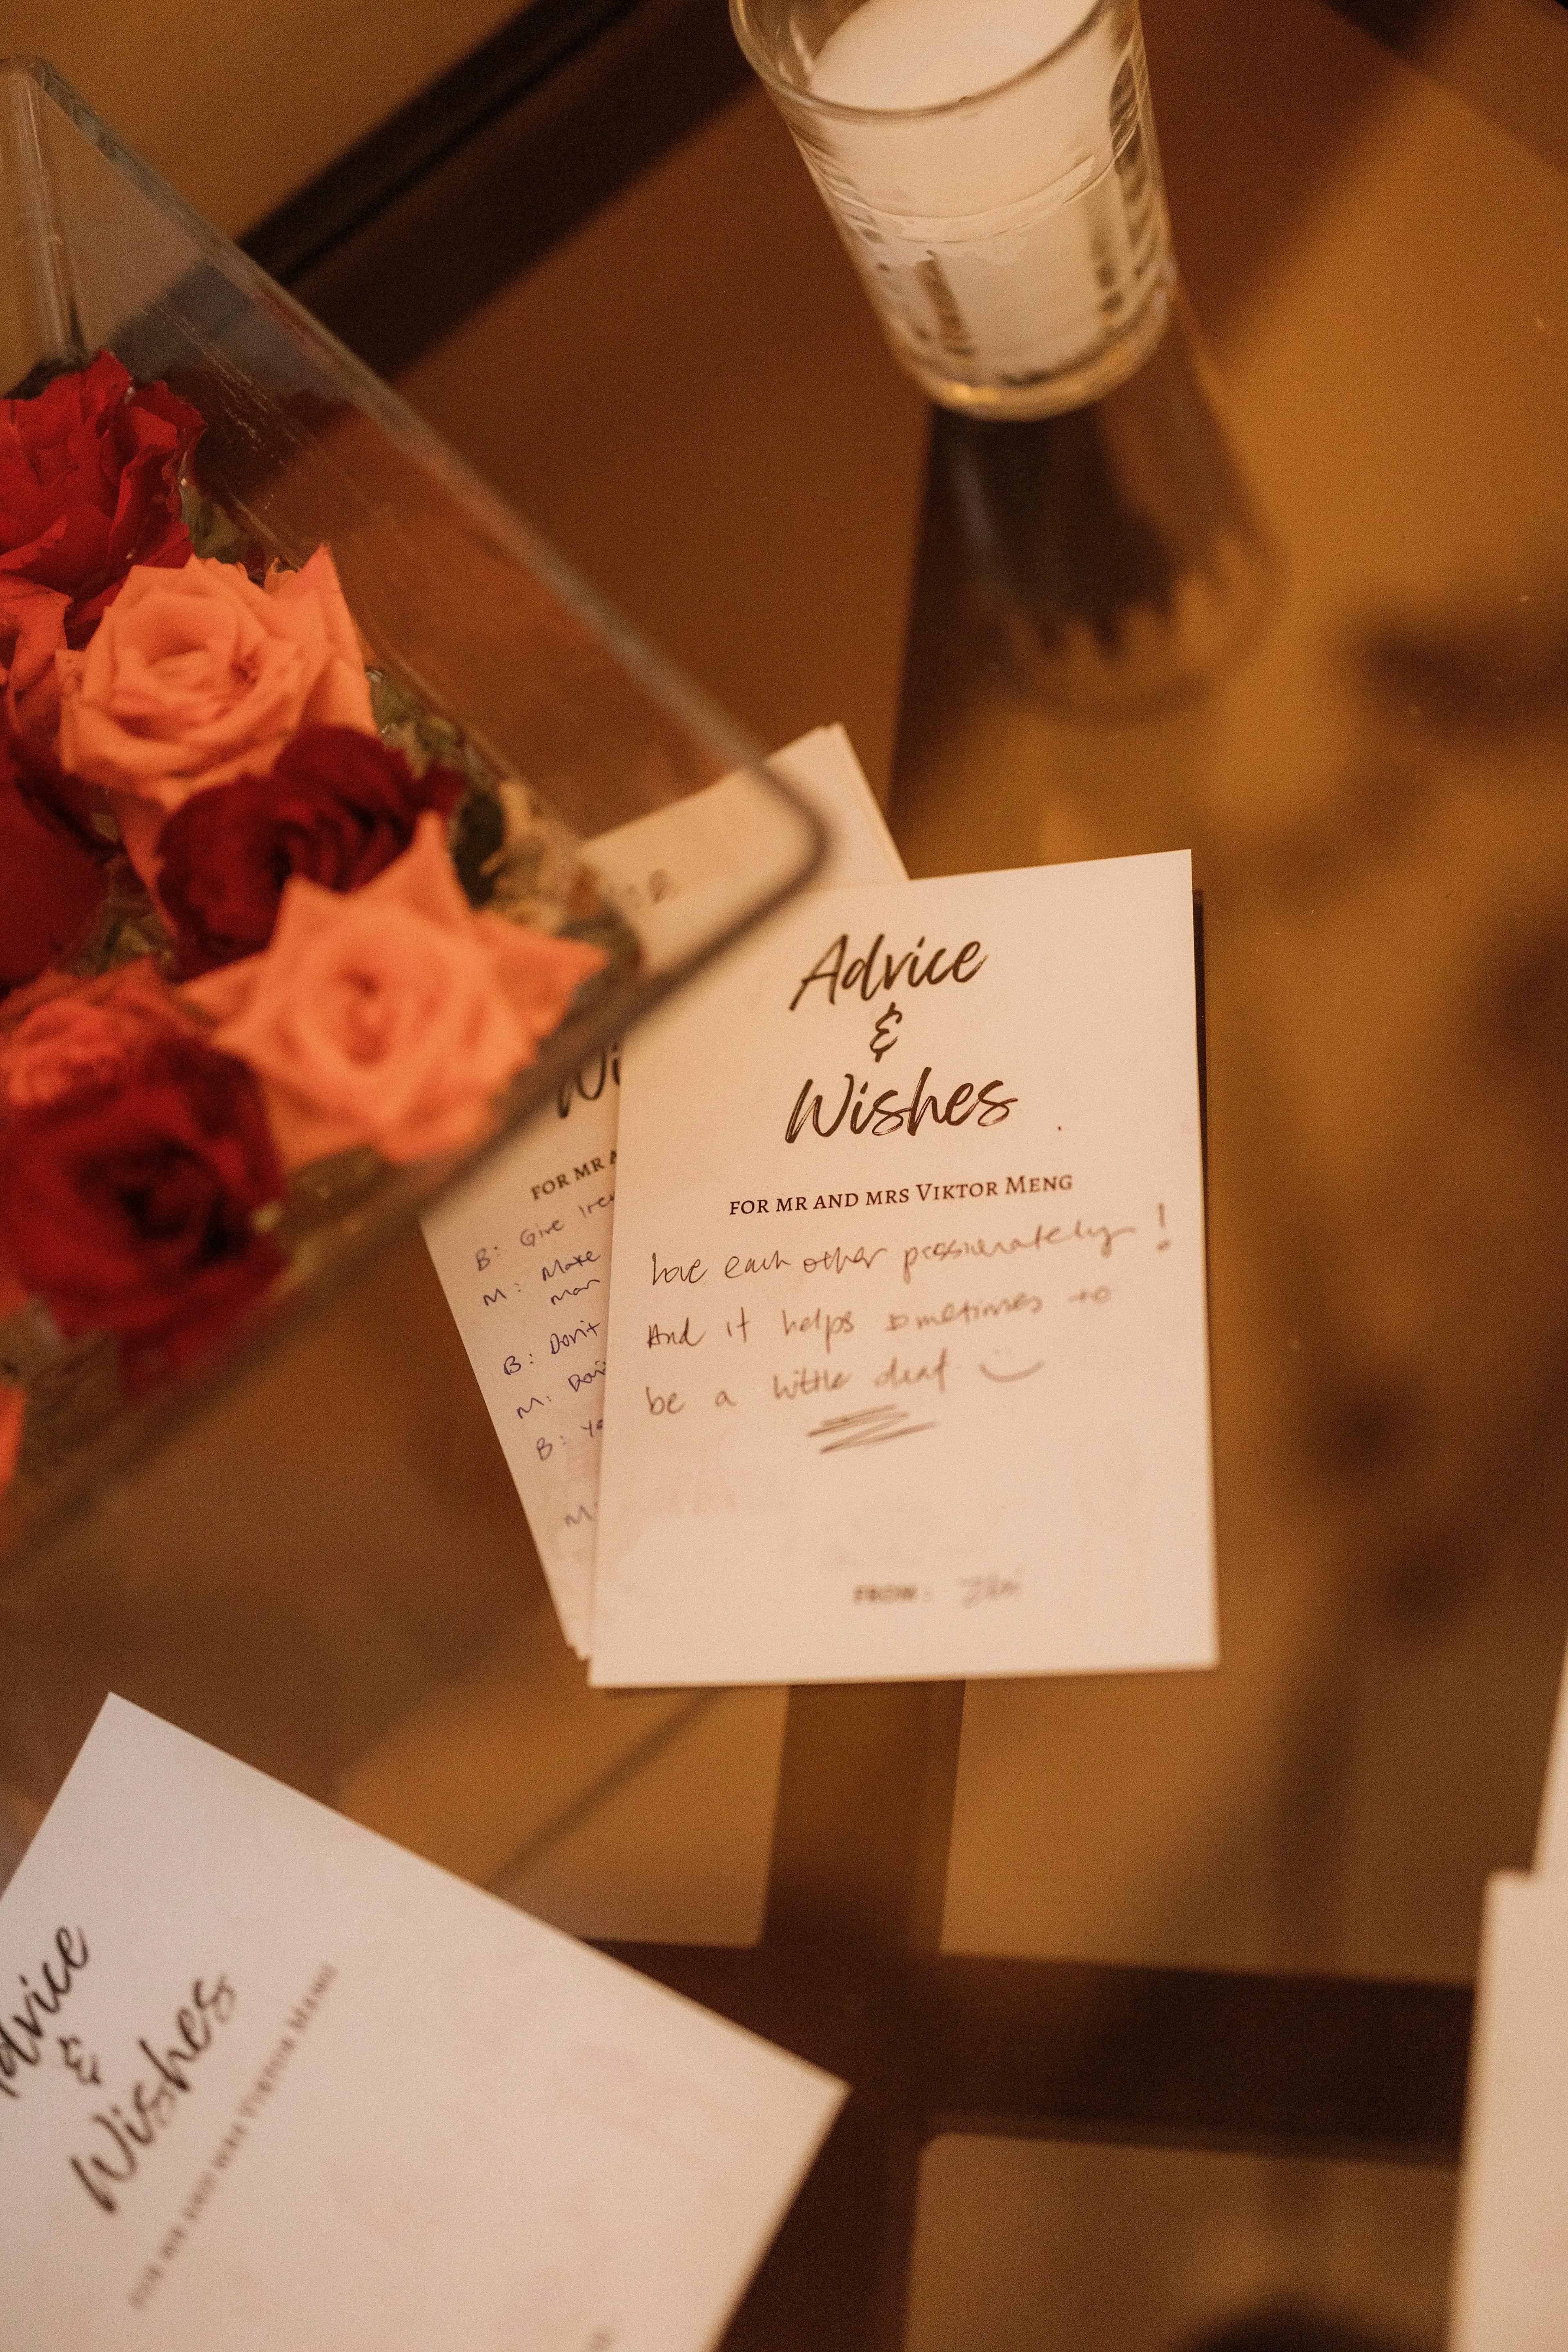 Advice
&
Wishes
FOR MR AND MRS VIKTOR MENG
Love each other passionately!
And it helps sometimes to
be a little deaf
FROM:
Wi
FOR MR A
B: Give
M: Make
man
B: Don't
M:
B: Yo
M:
dvice
&
Wishes
FOR MR AND MRS VIKTOR MENG